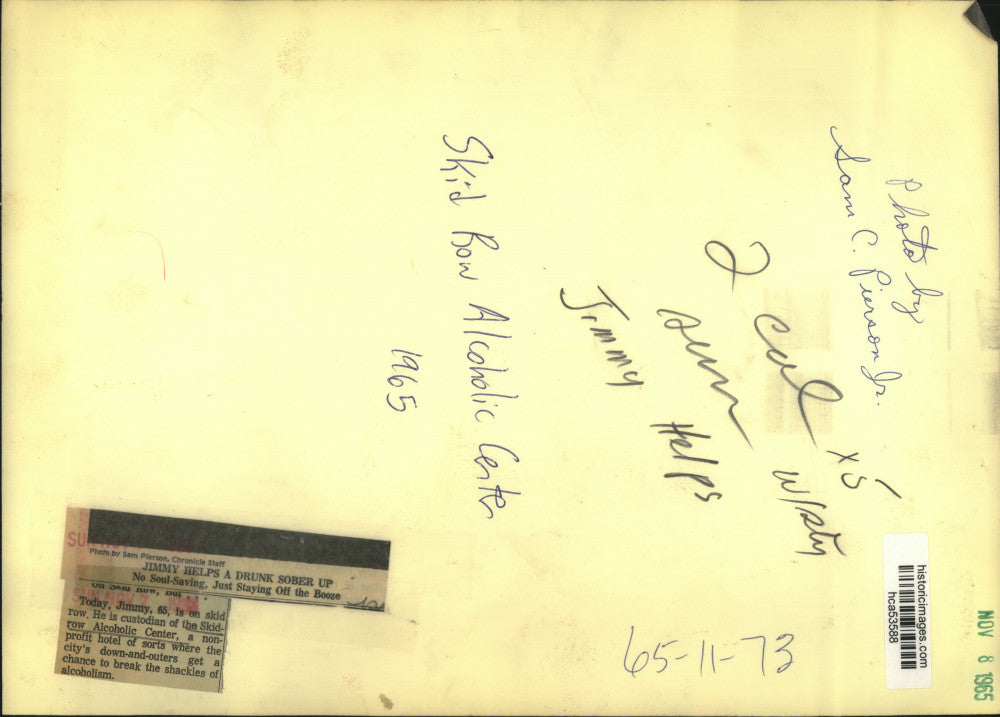 Photo by
Sam C. Pierson Jr.
2 col x 5
w/sty
Helps
Jimmy
Skid Row Alcoholic Center
1965
Photo by Sam Pierson, Chronicle Staff
JIMMY HELPS A DRUNK SOBER UP
No Soul-Saving, Just Staying Off the Booze
Today, Jimmy, 65, is on skid
row. He is custodian of the Skid-
row Alcoholic Center, a non-
profit hotel of sorts where the
city's down-and-outers get a
chance to break the shackles of
alcoholism.
65-11-73
historicimages.com
hca53588
NOV 8 1965